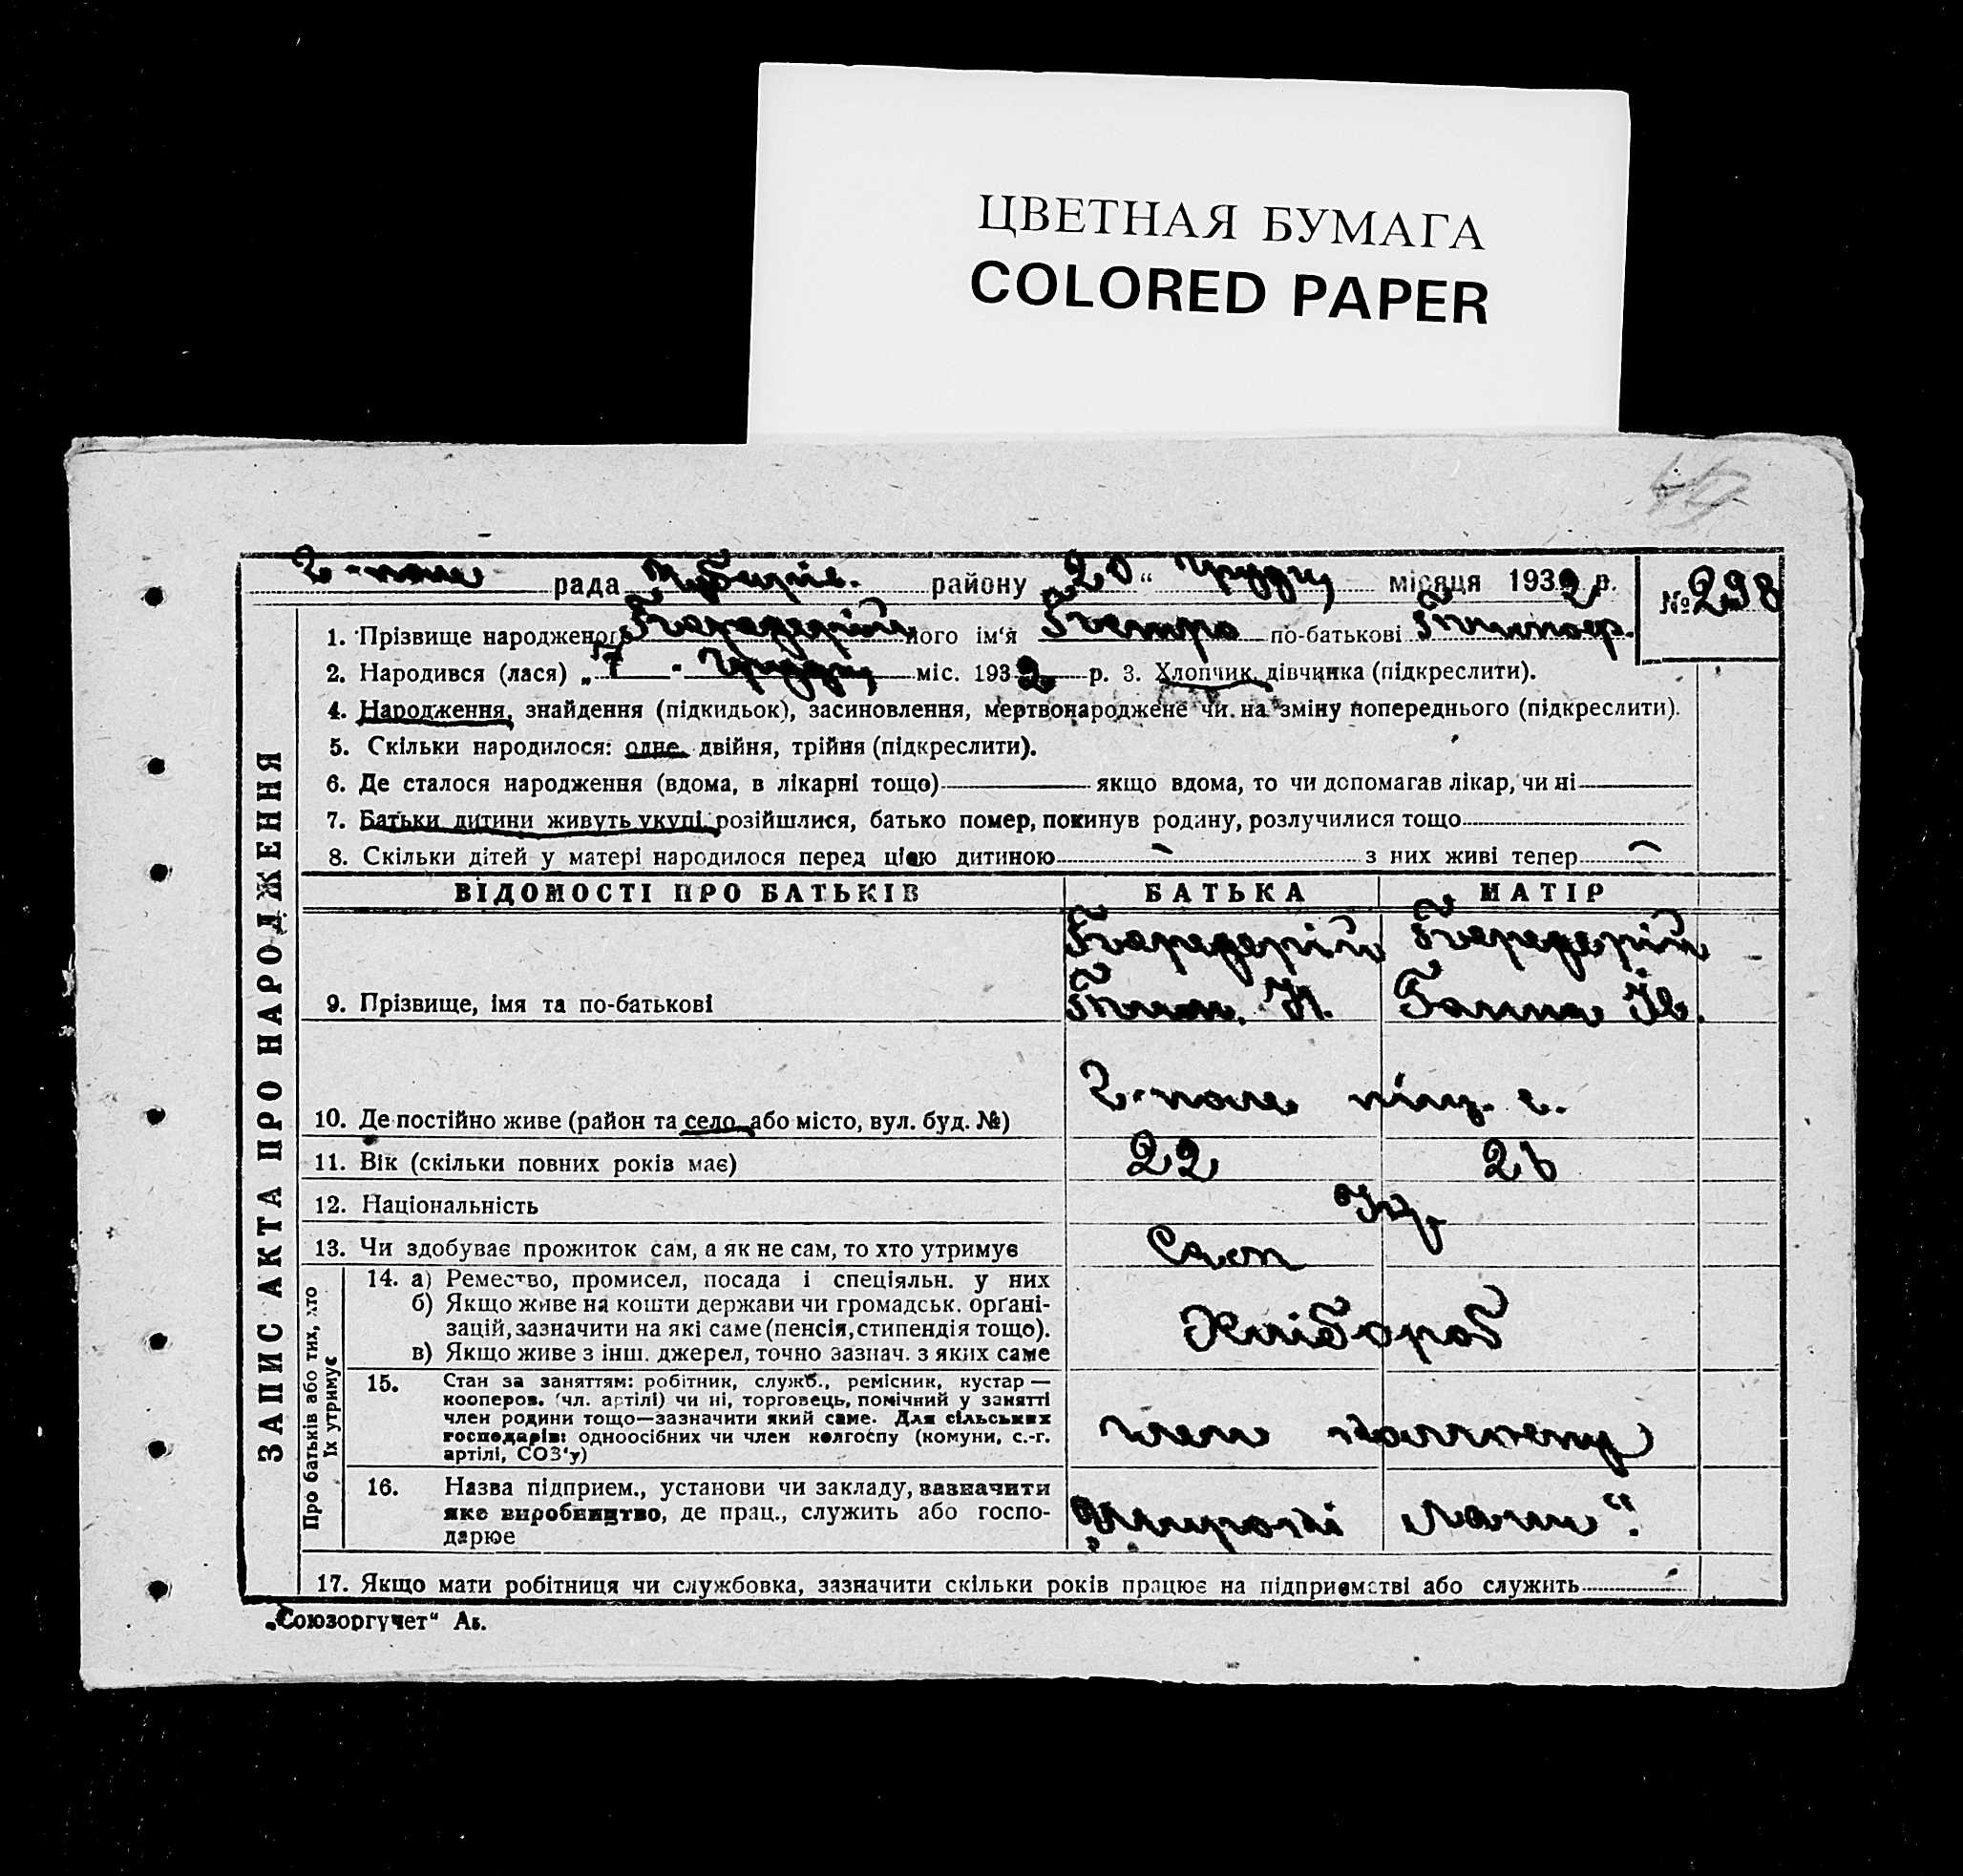 ЦВЕТНАЯ БУМАГА
COLORED PAPER
Г-поле рада району 20 “ грудня місяця 1932 р. № 298
1. Прізвище народженого його ім‘я Петро по-батькові
2. Народився (лася) „ 7 “ грудня міс. 1932 р. 3. Хлопчик, дівчинка (підкреслити).
4. Народження, знайдення (підкидьок), засиновлення, мертвонароджене чи на зміну попереднього (підкреслити).
5. Скільки народилося: одне, двійня, трійня (підкреслити).
6. Де сталося народження (вдома, в лікарні тощо) якщо вдома, то чи допомагав лікар, чи ні
7. Батьки дитини живуть укупі, розійшлися, батько помер, покинув родину, розлучилися тощо
8. Скільки дітей у матері народилося перед цією дитиною - з них живі тепер -
ЗАПИС АКТА ПРО НАРОДЖЕННЯ
ВІДОМОСТІ ПРО БАТЬКІВ БАТЬКА МАТІР
9. Прізвище, імя та по-батькові Ганна Ів.
10. Де постійно живе (район та село або місто, вул. буд. №) Г-поле
11. Вік (скільки повних років має) 22 26
12. Національність Укр.
13. Чи здобуває прожиток сам, а як не сам, то хто утримує Сам
Про батьків або тих, хто
їх утримує
14. а) Ремество, промисел, посада і спеціяльн. у них
б) Якщо живе на кошти держави чи громадськ. орґані-
зацій, зазначити на які саме (пенсія, стипендія тощо).
в) Якщо живе з інш. джерел, точно зазнач. з яких саме
Хлібороб
15. Стан за заняттям: робітник, служб., ремісник, кустар —
кооперов. (чл. артілі) чи ні, торговець, помічний у занятті
член родини тощо—зазначити який саме. Для сільських
господарів: одноосібних чи член колгоспу (комуни, с.-г.
артілі, СОЗ‘у)
член колгоспу
16. Назва підприєм., установи чи закладу, зазначити
яке виробництво, де прац., служить або госпо-
дарює
17. Якщо мати робітниця чи службовка, зазначити скільки років працює на підприємстві або служить
„Союзоргучет“ Ав.